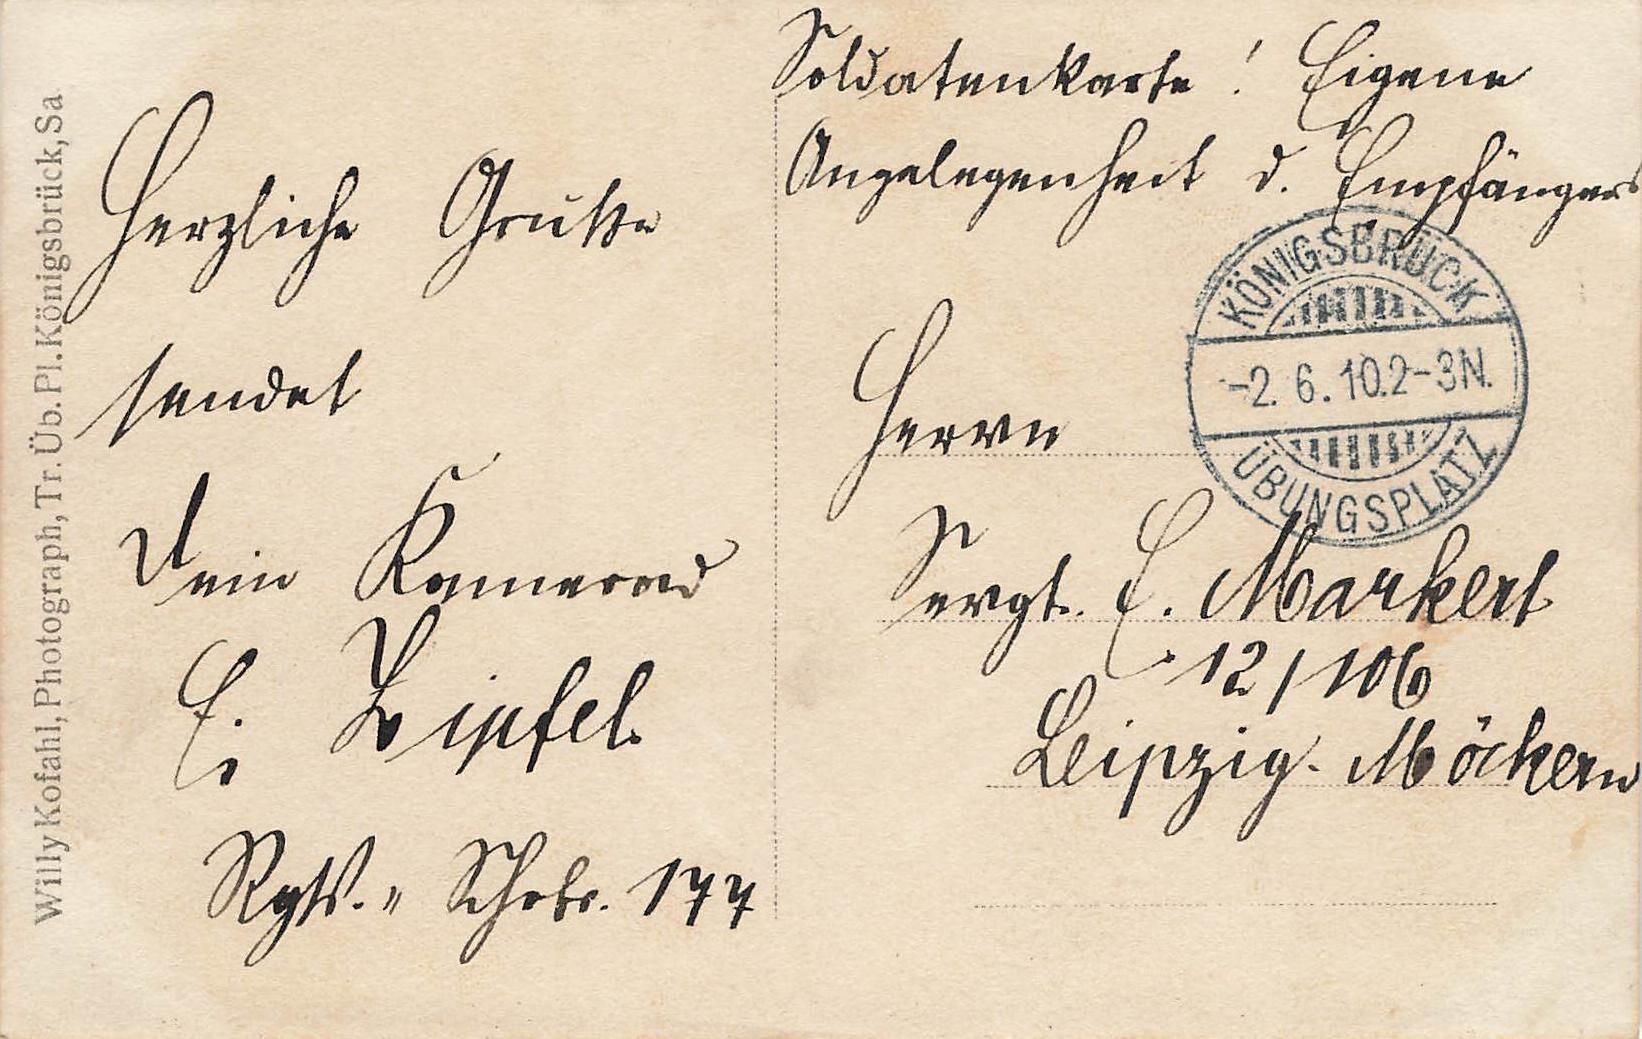 Willy Kofahl, Photograph, Tr. Üb. Pl. Königsbrück, Sa
Herzliche Grüße
sendet
Dein Kamerad
E. Zipfel.
Rgts.-Schrbr. 177
Soldatenkarte! Eigene
Angelegenheit d. Empfängers
KÖNIGSBRÜCK
-2. 6. 10. 2-3N.
ÜBUNGSPLATZ
Herrn
Sergt. E. Markert
12/106
Leipzig-Möckern